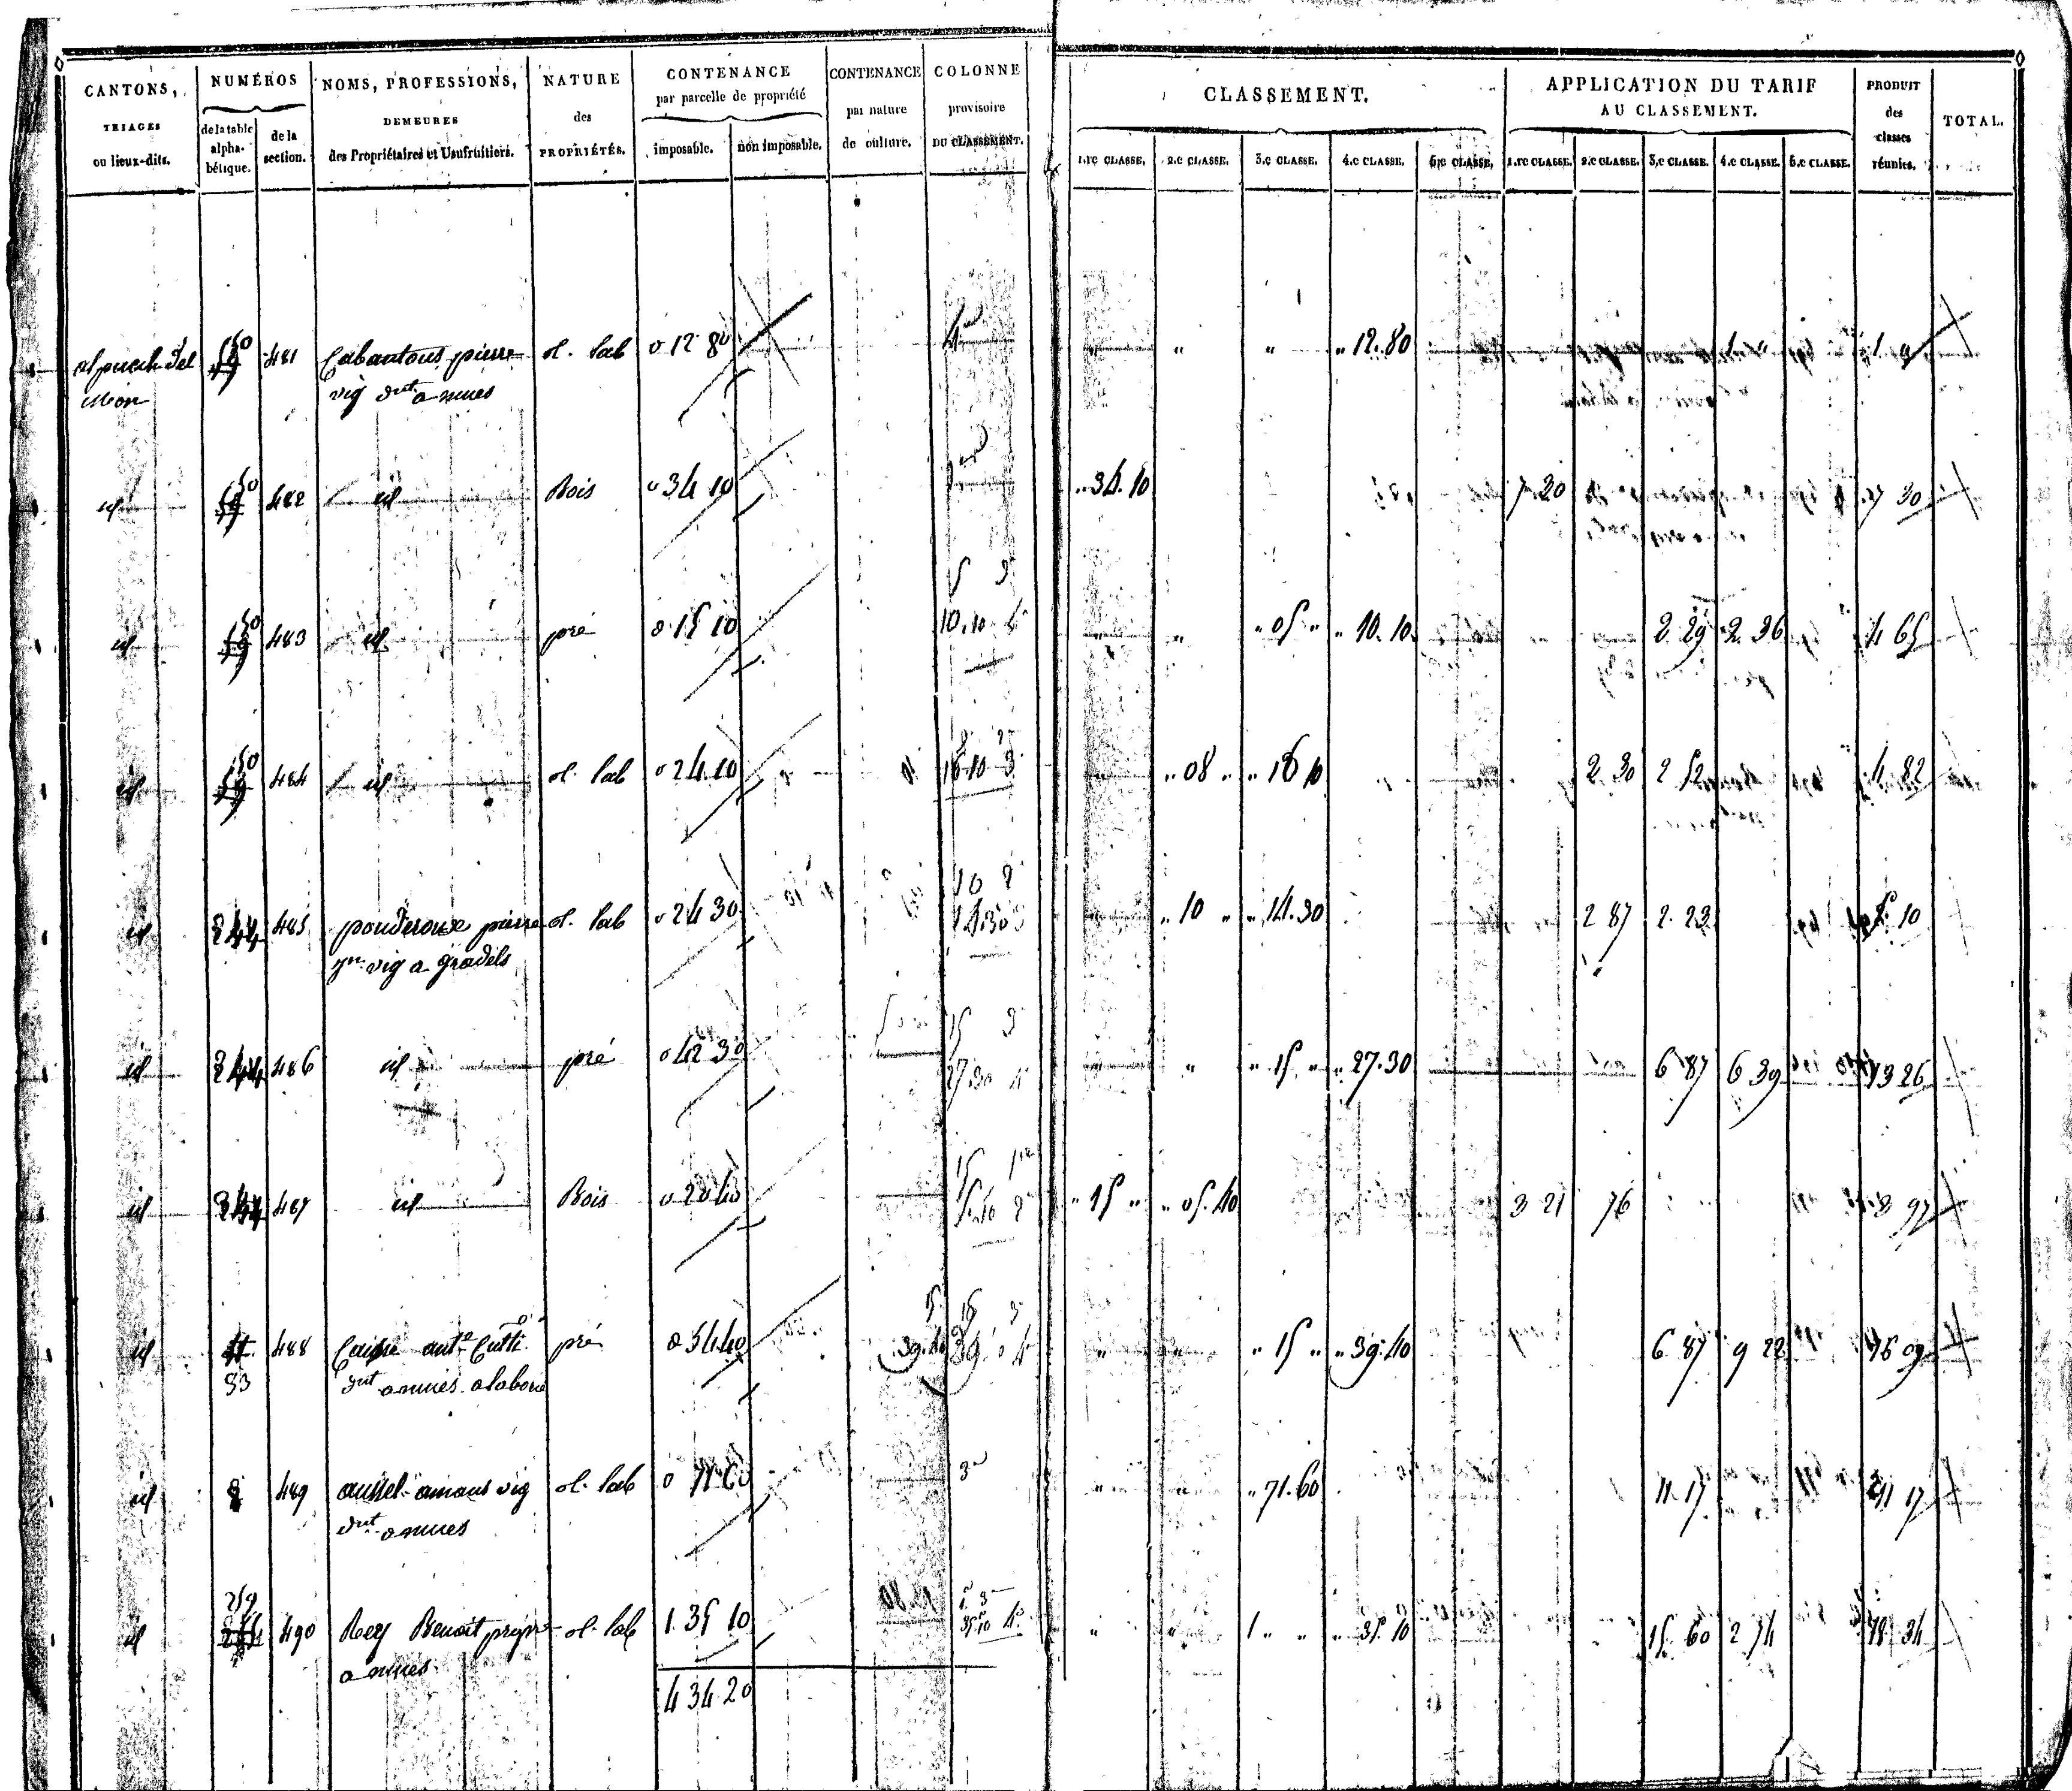 CANTONS, TRIAGES ou lieux-dits.
NUMÉROS
de la table alphabétique.
de la section.
NOMS, PROFESSIONS, DEMEURES des Propriétaires et Usufruitiers.
NATURE des PROPRIÉTÉS.
CONTENANCE par parcelle de propriété
imposable.
non imposable.
CONTENANCE par nature de culture.
COLONNE provisoire DU CLASSEMENT.
CLASSEMENT.
1.re CLASSE. 2.e CLASSE. 3.e CLASSE. 4.e CLASSE. 5.e CLASSE.
APPLICATION DU TARIF AU CLASSEMENT.
1.re CLASSE. 2.e CLASSE. 3.e CLASSE. 4.e CLASSE. 5.e CLASSE.
PRODUIT des classes réunies.
TOTAL.
50 59 481 Cabantous pierre t. lab 0 12 80 4e " " " 12.80 1 " 1 "
vig dnt a nuces
id 50 59 482 id Bois 0 34 10 " 34.10 7 30 7 30
id 50 59 483 id pré 0 15 10 5 3 10.10 4 " " " 05 " " 10.10 2. 29 2. 36 4 65
id 50 59 484 id t. lab 0 24 10 8 2 16 10 3 " 08 " " 16 10 2. 30 2 52 4. 82
id 244 485 pouderoux pierre t. lab 0 24 30 10 2 14 30 3 " 10 " " 14.30 2 87 2. 23 5. 10
jn. vig a gradels
id 244 486 id pré 0 42 30 15 3 27.30 4 " " 15 " " 27.30 6 87 6 39 13 26
id 244 487 id Bois 0 20 40 15 1re 5.40 2 " 15 " " 05.40 3 21 76 3 97
id 53 488 ant.e pré 0 54 40 15 3 39.40 4 " " 15 " " 39.40 6 87 9 22 16 09
dnt a nuces
id 8 489 aussel amans vig t. lab 0 71 60 3e " 71.60 11. 17 11 17
dnt a nuces
id 259 490 Rey Benoit propre t. lab 1. 35 10 1. 3 35.10 4e " 1 " " " 35. 10 15. 60 2 74 18 34
a nuces
4 34 20